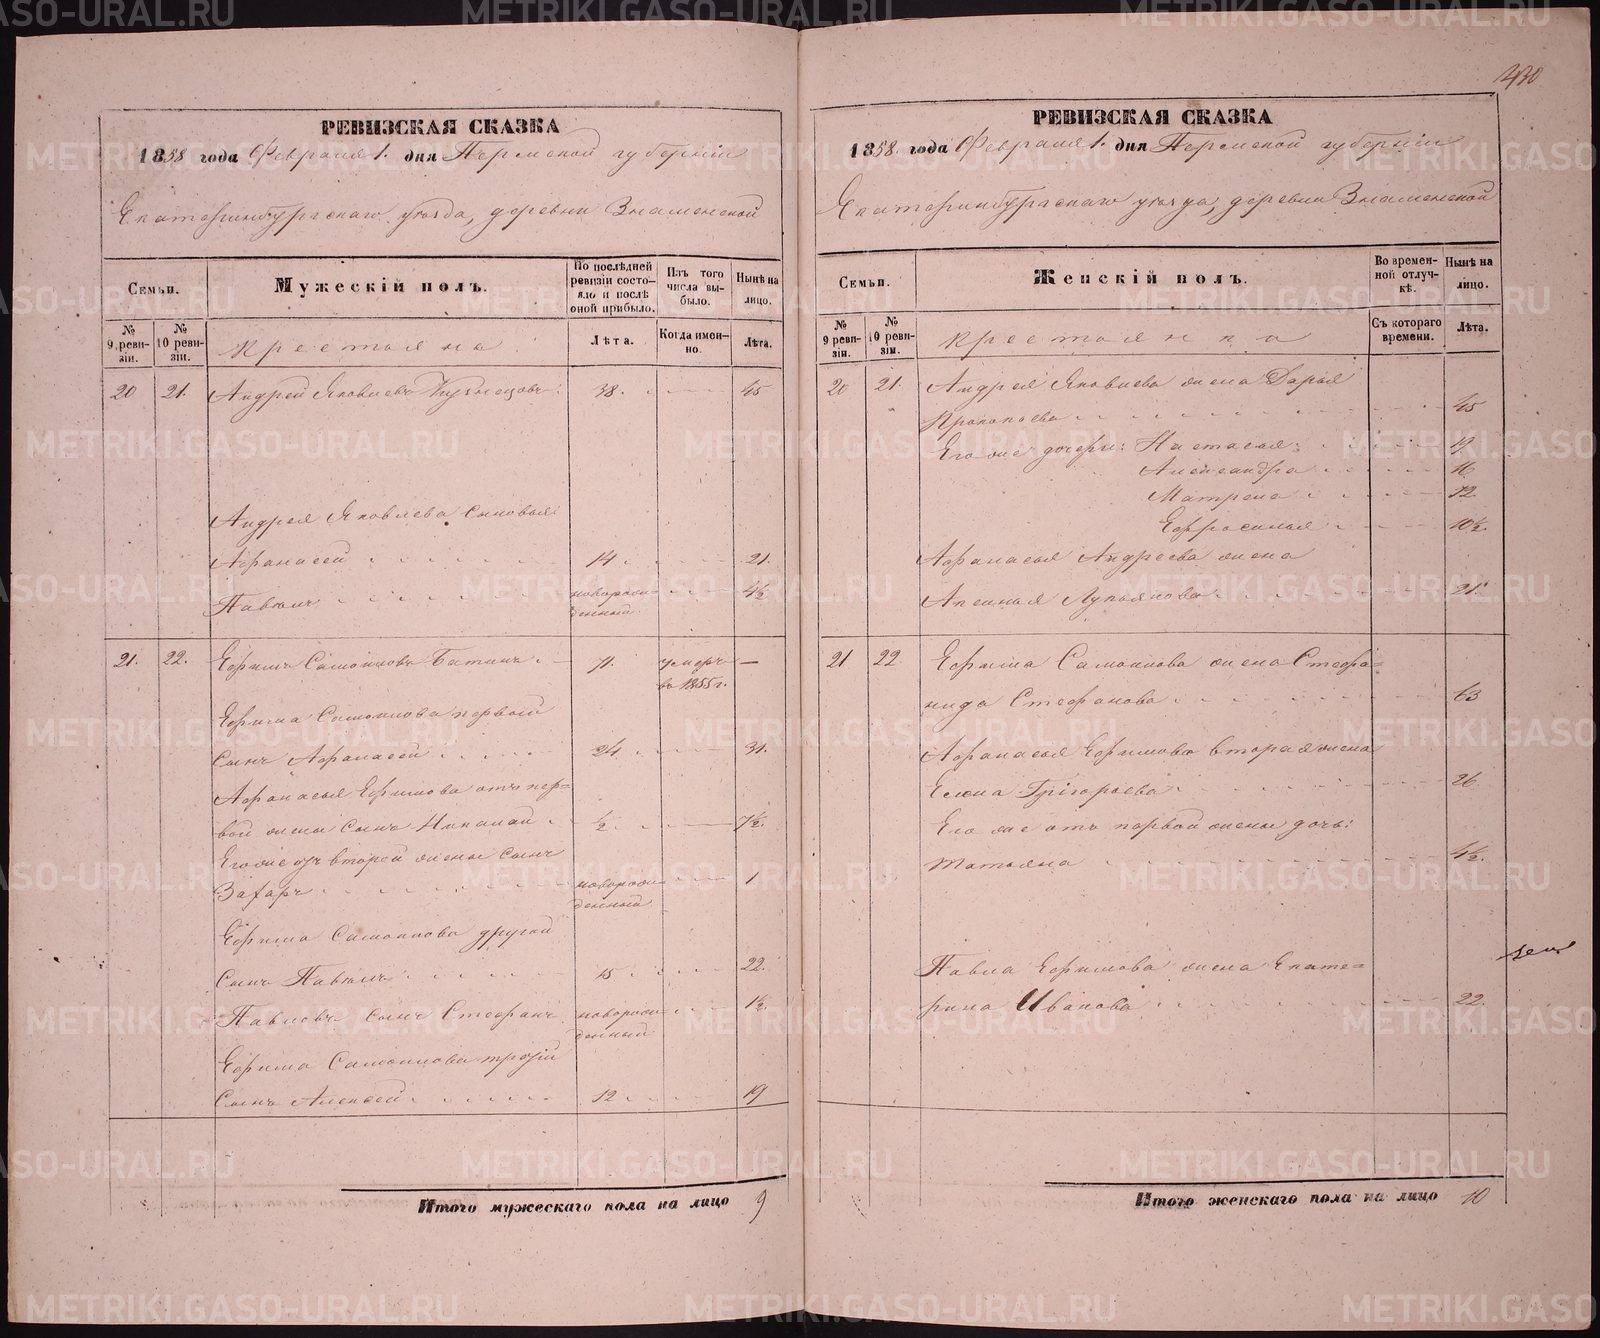 РЕВИЗСКАЯ СКАЗКА
1858 года Февраля 1. дня Пермской губерніи
Екатеринбургскаго уѣзда, деревни Знаменской
Семьи.
Мужескій полъ.
По послѣдней ревизіи состояло и послѣ оной прибыло.
Изъ того числа выбыло.
Нынѣ на лицо.
№ 9 ревизіи.
№ 10 ревизіи.
Крестьяне
Лѣта.
Когда именно.
Лѣта.
20 21. Андрей Яковлевъ Кузнецовъ 38. 45
Андрея Яковлева сыновья:
Афанасей 14 21.
Павелъ новорожденный 4½
21. 22. Ефимъ Самойловъ Батинъ 71. умеръ въ 1855 г. —
Ефима Самойлова первый
сынъ Афанасей 24. 31.
Афанасья Ефимова отъ пер-
вой жены сынъ Николай ½ 7½.
Его же отъ второй жены сынъ
Захаръ новорожденный 1
Ефима Самойлова другой
сынъ Павелъ 15 22.
Павловъ сынъ Стефанъ новорожденный 1½.
Ефима Самойлова третій
сынъ Алексей 12 19
Итого мужескаго пола на лицо 9
430
РЕВИЗСКАЯ СКАЗКА
1858 года Февраля 1. дня Пермской губерніи
Екатеринбургскаго уѣзда, деревни Знаменской
Семьи.
Женскій полъ.
Во временной отлучкѣ.
Нынѣ на лицо.
№ 9 ревизіи.
№ 10 ревизіи.
Крестьянки
Съ котораго времени.
Лѣта.
20 21. Андрея Яковлева жена Дарья
Прокопьева 45
Его же дочери: Настасья 19
Александра 16
Матрена 12
Ефросинья 10½.
Афанасья Андреева жена
Аксинья Лукьянова 21
21 22 Ефима Самойлова жена Стефа-
нида Стефанова 63
Афанасья Ефимова вторая жена
Елена Григорьева 26
Его же отъ первой жены дочь:
Татьяна 4½.
Павла Ефимова жена Екате-
рина Иванова 22.
Итого женскаго пола на лицо 10
METRIKI.GASO-URAL.RU